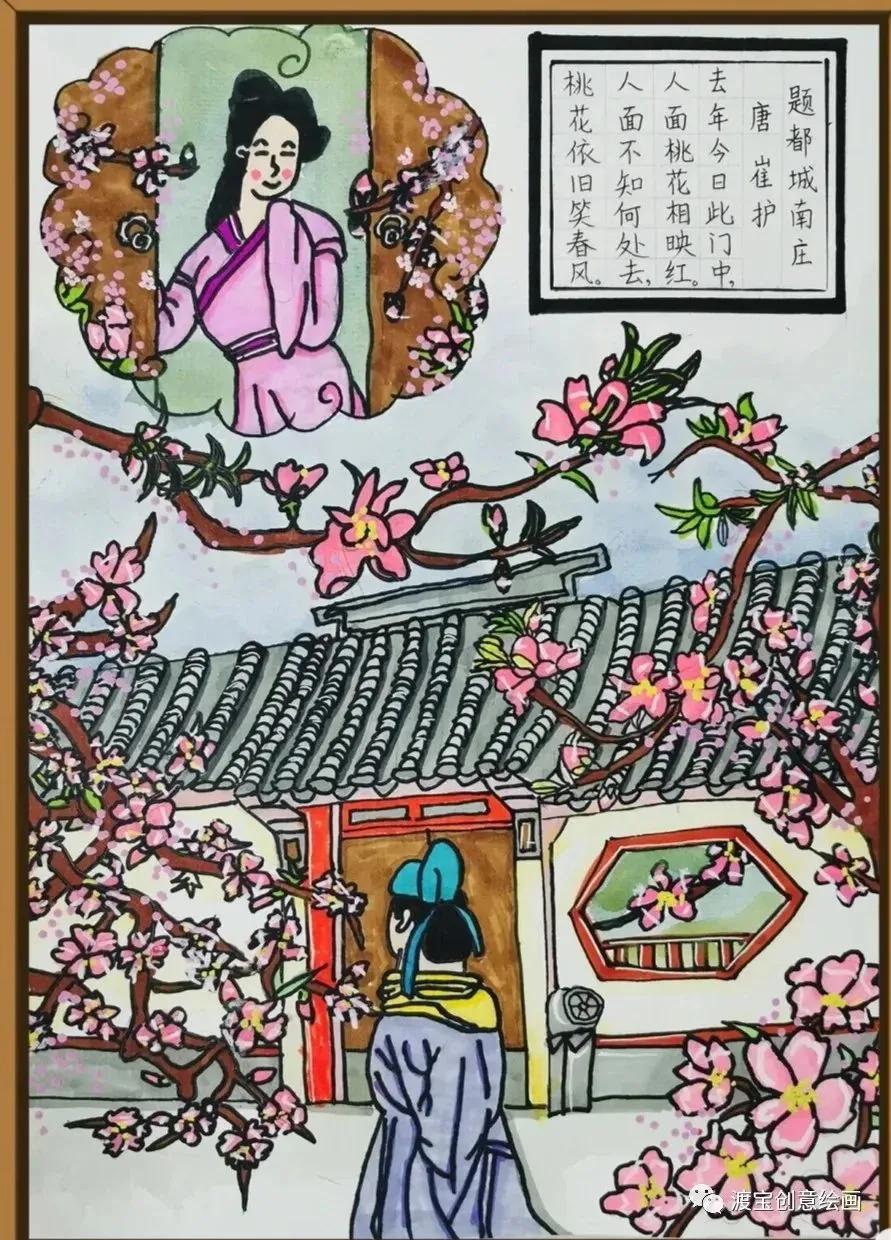 题都城南庄
唐 崔护
去年今日此门中，
人面桃花相映红。
人面不知何处去，
桃花依旧笑春风。
渡宝创意绘画